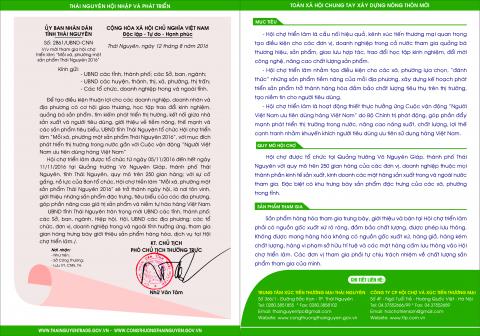 THÁI NGUYÊN HỘI NHẬP VÀ PHÁT TRIỂN
ỦY BAN NHÂN DÂN
TỈNH THÁI NGUYÊN
Số: 2861/UBND-CNN
V/v mời tham gia hội chợ
triển lãm "Mỗi xã, phường một
sản phẩm Thái Nguyên 2016"
CỘNG HÒA XÃ HỘI CHỦ NGHĨA VIỆT NAM
Độc lập - Tự do - Hạnh phúc
Thái Nguyên, ngày 12 tháng 8 năm 2016
Kính gửi:
- UBND các tỉnh, thành phố; các Sở, ban, ngành;
- UBND các huyện, thành, thị, xã, phường, thị trấn;
- Các tổ chức, doanh nghiệp trong và ngoài tỉnh.
Để tạo điều kiện thuận lợi cho các doanh nghiệp, doanh nhân và
địa phương có cơ hội giao thương, học tập trao đổi kinh nghiệm,
quảng bá sản phẩm, tìm kiếm phát triển thị trường, kết nối giữa nhà
sản xuất và người tiêu dùng, giới thiệu về tiềm năng, thế mạnh và
các sản phẩm tiêu biểu, UBND tỉnh Thái Nguyên tổ chức Hội chợ triển
lãm "Mỗi xã, phường một sản phẩm Thái Nguyên 2016", với mục đích
phát triển thị trường trong nước gắn với Cuộc vận động "Người Việt
Nam ưu tiên dùng hàng Việt Nam"
Hội chợ triển lãm được tổ chức từ ngày 05/11/2016 đến hết ngày
11/11/2016 tại Quảng trường Võ Nguyên Giáp, thành phố Thái
Nguyên, tỉnh Thái Nguyên, quy mô trên 250 gian hàng; với sự cố
gắng, nỗ lực của Ban tổ chức, Hội chợ triển lãm "Mỗi xã, phường một
sản phẩm Thái Nguyên 2016" sẽ trở thành ngày hội, là nơi tôn vinh,
giới thiệu những sản phẩm đặc trưng, tiêu biểu của các địa phương,
góp phần nâng cao giá trị sản phẩm và niềm tự hào hàng Việt Nam
UBND tỉnh Thái Nguyên trân trọng mời UBND các tỉnh, thành phố,
các Sở, ban, ngành, Hiệp hội, Hội, UBND các địa phương, các tổ
chức, đơn vị, doanh nghiệp trong và ngoài tỉnh hưởng ứng, tham gia
gian hàng trưng bày giới thiệu sản phẩm hàng hóa, dịch vụ tại Hội
chợ triển lãm./.
Nơi nhận:
- Như trên;
- Sở Công thương;
- Lưu VT, CNN, TH
KT. CHỦ TỊCH
PHÓ CHỦ TỊCH THƯỜNG TRỰC
Nhữ Văn Tâm
WWW.THAINGUYENTRADE.GOV.VN - WWW.CONGTHUONGTHAINGUYEN.GOV.VN
TOÀN XÃ HỘI CHUNG TAY XÂY DỰNG NÔNG THÔN MỚI
MỤC TIÊU
- Hội chợ triển lãm là cầu nối hiệu quả, kênh xúc tiến thương mại quan trọng
tạo điều kiện cho các đơn vị, doanh nghiệp trong cả nước tham gia quảng bá
thương hiệu, sản phẩm, giao lưu hợp tác, trao đổi học tập kinh nghiệm, đổi mới
công nghệ, nâng cao chất lượng sản phẩm.
- Hội chợ triển lãm nhằm tạo điều kiện cho các xã, phường lựa chọn, "đánh
thức" những sản phẩm tiềm năng của mỗi địa phương, xây dựng kế hoạch phát
triển sản phẩm thành hàng hóa đảm bảo chất lượng tiêu thụ trên thị trường,
tạo niềm tin cho người tiêu dùng.
- Hội chợ triển lãm là hoạt động thiết thực hưởng ứng Cuộc vận động "Người
Việt Nam ưu tiên dùng hàng Việt Nam" do Bộ Chính trị phát động, góp phần đẩy
mạnh phát triển thị trường trong nước, nâng cao năng suất, chất lượng, lợi thế
cạnh tranh nhằm khuyến khích người tiêu dùng ưu tiên sử dụng hàng Việt Nam.
QUY MÔ HỘI CHỢ
Hội chợ được tổ chức tại Quảng trường Võ Nguyên Giáp, thành phố Thái
Nguyên với quy mô trên 250 gian hàng của các đơn vị, doanh nghiệp thuộc mọi
thành phần kinh tế sản xuất, kinh doanh các mặt hàng sản xuất trong và ngoài nước
tham gia. Đặc biệt có khu trưng bày sản phẩm đặc trưng của các xã, phường
trong tỉnh.
SẢN PHẨM THAM GIA
Sản phẩm hàng hóa tham gia trưng bày, giới thiệu và bán tại Hội chợ triển lãm
phải có nguồn gốc xuất xứ rõ ràng, đảm bảo chất lượng, được phép lưu thông.
Không được mang hàng hóa không có nguồn gốc xuất xứ, hàng giả, hàng kém
chất lượng, hàng vi phạm sở hữu trí tuệ và các mặt hàng cấm lưu thông vào Hội
chợ triển lãm. Các đơn vị tham gia phải tự chịu trách nhiệm về chất lượng sản
phẩm tham gia của mình.
CHI TIẾT LIÊN HỆ
TRUNG TÂM XÚC TIẾN THƯƠNG MẠI THÁI NGUYÊN
CÔNG TY CP HỘI CHỢ VÀ XÚC TIẾN THƯƠNG MẠI